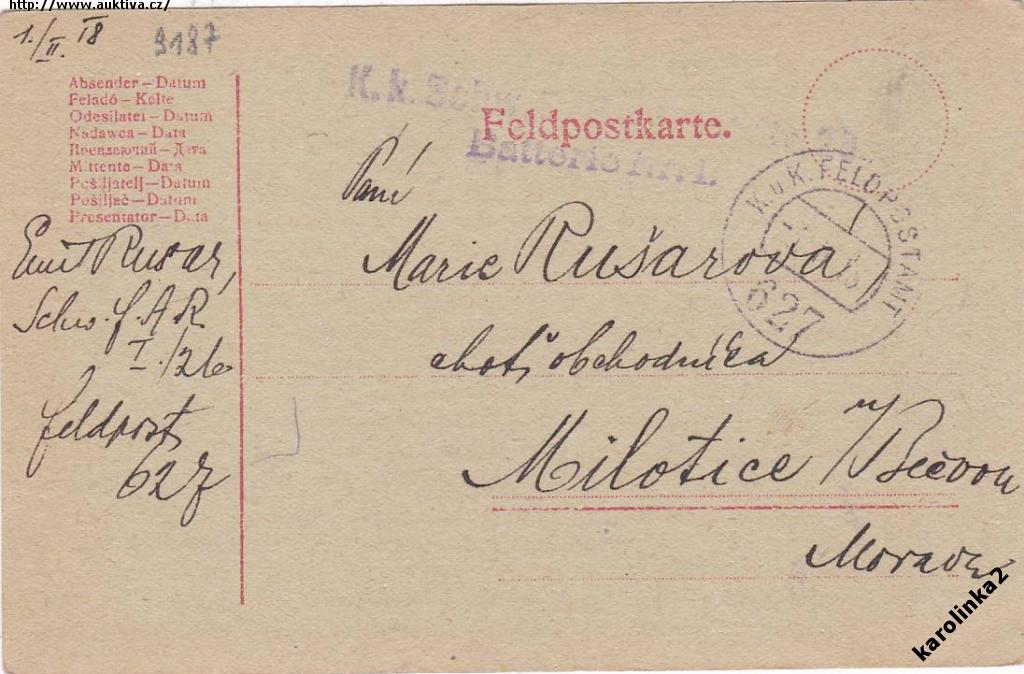 http://www.auktiva.cz/
1./II. 18
9187
Absender – Datum
Feladó – Kelte
Odesílatel – Datum
Nadawca – Data
Посилаючий – Дата
Mittente – Data
Pošiljatelj – Datum
Pošiljač – Datum
Presentator – Data
Emil Rušar,
Schw. f. A R.
I./26
feldpost
627
K. k. Sch
Batterie Nr. 1.
Feldpostkarte.
K. u. K. FELDPOSTAMT
627
Paní
Marie Rušarova
choť obchodníka
Milotice n/Bečvou
Morava
karolinka2